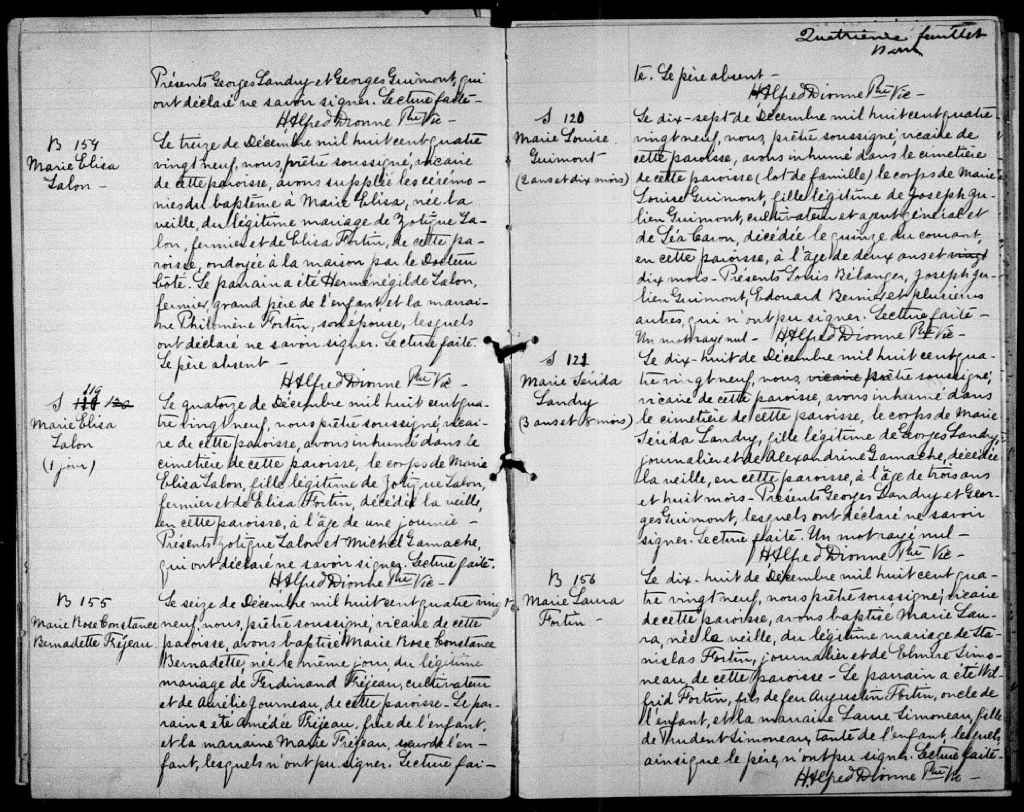 Présents Georges Landry et Georges Guimont, qui
ont déclaré ne savoir signer. Lecture faite -
H Alfred Dionne Ptre Vic -
B 154
Marie Elisa
Lalon -
Le treize de Décembre mil huit cent quatre
vingt neuf, nous, prêtre soussigné, vicaire
de cette paroisse, avons suppléé les cérémo-
nies du baptême à Marie Elisa, née la
veille, du légitime mariage de Zotique La-
lon, fermier et de Elisa Fortin, de cette pa-
roisse, ondoyée à la maison par le Docteur
Côté. Le parrain a été Herménégilde Lalon,
fermier, grand père de l'enfant, et la marrai-
ne Philomène Fortin, son épouse, lesquels
ont déclaré ne savoir signer. Lecture faite.
Le père absent -
H Alfred Dionne Ptre Vic -
119
S 118 120
Marie Elisa
Lalon
(1 jour)
Le quatorze de Décembre mil huit cent qua-
tre vingt neuf, nous prêtre soussigné, vicai-
re de cette paroisse, avons inhumé dans le
cimetière de cette paroisse, le corps de Marie
Elisa Lalon, fille légitime de Zotique Lalon,
fermier et de Elisa Fortin, décédée la veille,
en cette paroisse, à l'âge de une journée -
Présents Zotique Lalon et Michel Gamache,
qui ont déclaré ne savoir signer. Lecture faite.
H Alfred Dionne Ptre Vic -
B 155
Marie Rose Constance
Bernadette Fréjeau
Le seize de Décembre mil huit cent quatre vingt
neuf, nous, prêtre soussigné, vicaire de cette
paroisse, avons baptisé Marie Rose Constance
Bernadette, née le même jour, du légitime
mariage de Ferdinand Fréjeau, cultivateur
et de Aurélie Journeau, de cette paroisse - Le par-
rain a été Amédée Fréjeau, frère de l'enfant,
et la marraine Marie Fréjeau, soeur de l'en-
fant, lesquels n'ont pu signer. Lecture fai-
Quatrième feuillet
te. Le père absent -
H Alfred Dionne Ptre Vic -
S 120
Marie Louise
Guimont
(2 ans et dix mois)
Le dix-sept de Décembre mil huit cent quatre
vingt neuf, nous, prêtre soussigné, vicaire de
cette paroisse, avons inhumé dans le cimetière
de cette paroisse (lot de famille) le corps de Marie
Louise Guimont, fille légitime de Joseph Ju-
lien Guimont, cultivateur et agent général et
de Léa Caron, décédée le quinze du courant,
en cette paroisse, à l'âge de deux ans et vingt
dix mois - Présents Louis Bélanger, Joseph Ju-
lien Guimont, Edouard Bernier et plusieurs
autres, qui n'ont pu signer. Lecture faite -
Un mot rayé nul - H Alfred Dionne Ptre Vic -
S 121
Marie Sérida
Landry
(3 ans et 8 mois)
Le dix-huit de Décembre mil huit cent qua-
tre vingt neuf, nous, vicaire prêtre soussigné,
vicaire de cette paroisse, avons inhumé dans
le cimetière de cette paroisse, le corps de Marie
Sérida Landry, fille légitime de Georges Landry,
journalier et de Alexandrine Gamache, décédée
la veille, en cette paroisse, à l'âge de trois ans
et huit mois - Présents Georges Landry et Geor-
ges Guimont, lesquels ont déclaré ne savoir
signer. Lecture faite. Un mot rayé nul -
H Alfred Dionne Ptre Vic -
B 156
Marie Laura
Fortin -
Le dix-huit de Décembre mil huit cent qua-
tre vingt neuf, nous, prêtre soussigné, vicaire
de cette paroisse, avons baptisé Marie Lau-
ra, née la veille, du légitime mariage de Sta-
nislas Fortin, journalier et de Elmire Simo-
neau, de cette paroisse - Le parrain a été Wil-
frid Fortin, fils de feu Augustin Fortin, oncle de
l'enfant, et la marraine Laure Simoneau, fille
de Prudent Simoneau, tante de l'enfant, lesquels
ainsi que le père, n'ont pu signer. Lecture faite -
H Alfred Dionne Ptre Vic -